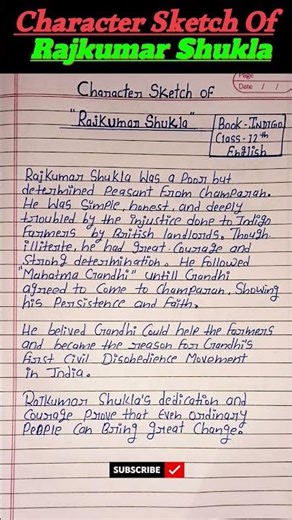 Character Sketch Of
Rajkumar Shukla
Page
Date / /
Character Sketch of
"Rajkumar Shukla"
Book-INDIGO
Class-12th
English
Rajkumar Shukla Was a Poor but
determined Peasant From Champaran.
He Was Simple, honest, and deeply
troubled by the injustice done to Indigo
Farmers by British landlords. Though
illitrate, he had great Courage and
Strong determination. He Followed
"Mahatma Gandhi" Untill Gandhi
agreed to Come to Champaran, Showing
his Persistence and Faith.
He belived Gandhi Could help the Farmers
and became the reason For Gandhi's
First Civil Disobedience Movement
in India.
Rajkumar Shukla's dedication and
Courage Prove that Even ordinary
PEOPLE Can Bring great Change.
SUBSCRIBE